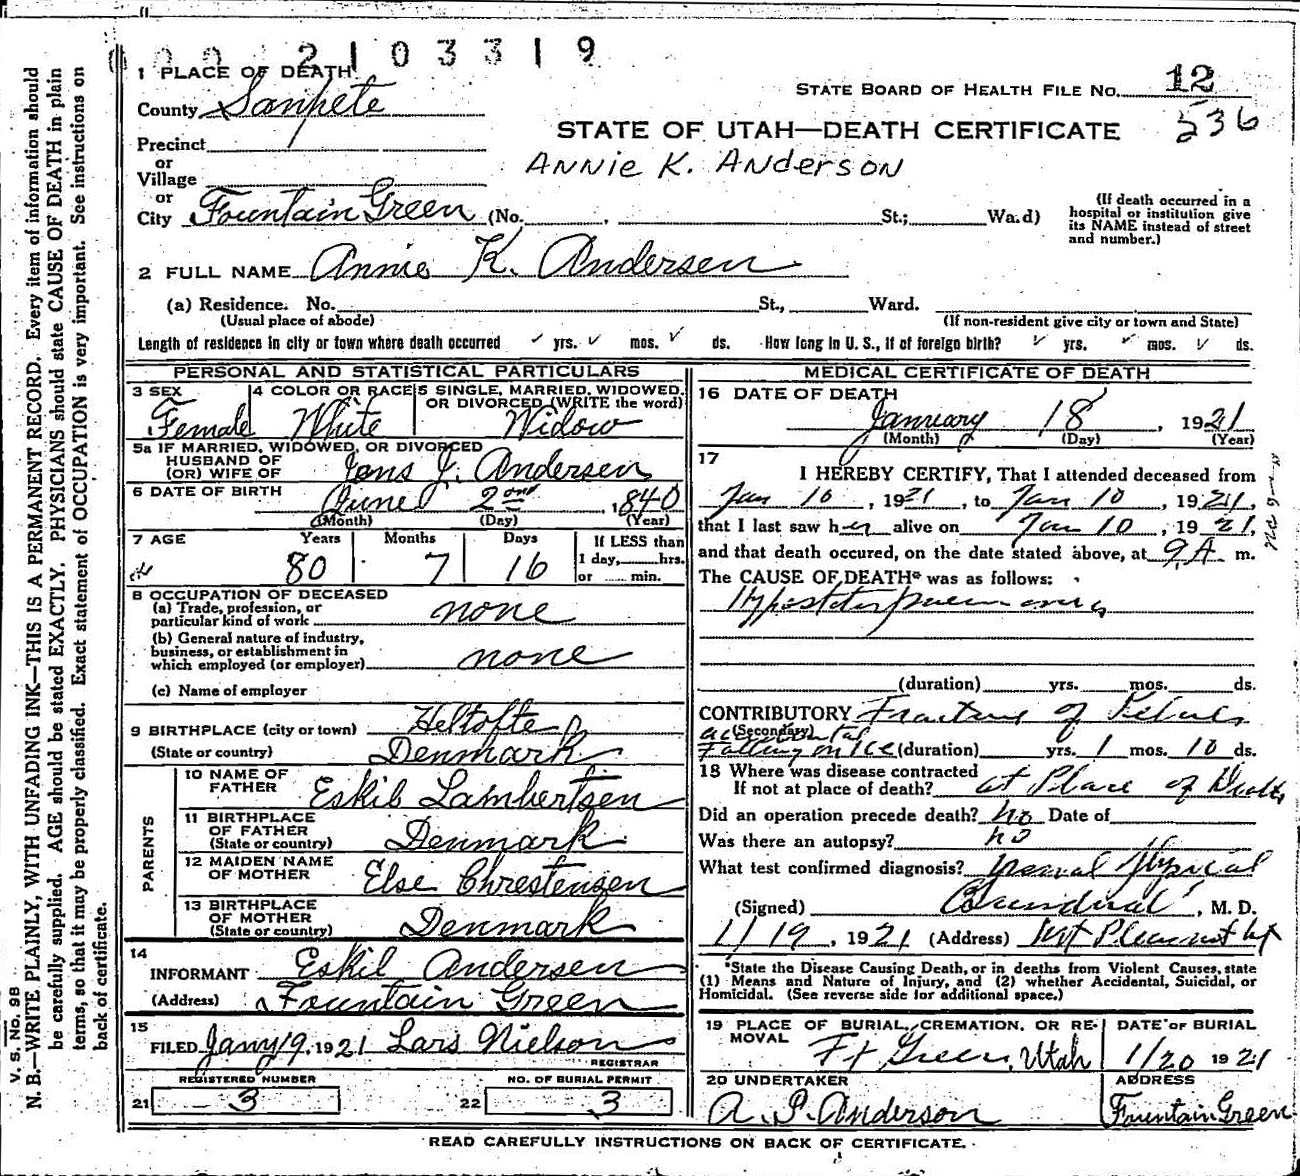 2103319
1 PLACE OF DEATH
County Sanpete
STATE BOARD OF HEALTH FILE No. 12
536
STATE OF UTAH—DEATH CERTIFICATE
Annie K. Anderson
Precinct
or
Village
or
City Fountain Green (No. , St.; Ward)
(If death occurred in a
hospital or institution give
its NAME instead of street
and number.)
2 FULL NAME Annie K. Andersen
(a) Residence. No. St., Ward.
(Usual place of abode) (If non-resident give city or town and State)
Length of residence in city or town where death occurred yrs. mos. ds. How long in U. S., if of foreign birth? yrs. mos. ds.
PERSONAL AND STATISTICAL PARTICULARS
3 SEX Female
4 COLOR OR RACE White
5 SINGLE, MARRIED, WIDOWED,
OR DIVORCED (WRITE the word)
Widow
5a IF MARRIED, WIDOWED, OR DIVORCED
HUSBAND OF
(OR) WIFE OF Jens J. Andersen
6 DATE OF BIRTH June 2nd, 1840
(Month) (Day) (Year)
7 AGE Years Months Days If LESS than
80 7 16 1 day, hrs.
or min.
8 OCCUPATION OF DECEASED
(a) Trade, profession, or
particular kind of work none
(b) General nature of industry,
business, or establishment in
which employed (or employer) none
(c) Name of employer
9 BIRTHPLACE (city or town) Heltofte
(State or country) Denmark
PARENTS
10 NAME OF
FATHER Eskil Lambertsen
11 BIRTHPLACE
OF FATHER
(State or country) Denmark
12 MAIDEN NAME
OF MOTHER Else Chrestensen
13 BIRTHPLACE
OF MOTHER
(State or country) Denmark
14
INFORMANT Eskil Andersen
(Address) Fountain Green
15
FILED Jany 19, 1921 Lars Nielson
REGISTRAR
REGISTERED NUMBER
21 3
NO. OF BURIAL PERMIT
22 3
MEDICAL CERTIFICATE OF DEATH
16 DATE OF DEATH
January 18, 1921
(Month) (Day) (Year)
17
I HEREBY CERTIFY, That I attended deceased from
Jan 10, 1921, to Jan 10, 1921,
that I last saw her alive on Jan 10, 1921,
and that death occured, on the date stated above, at 9 A m.
The CAUSE OF DEATH* was as follows:
(duration) yrs. mos. ds.
CONTRIBUTORY Fracture of Pelvis
(Secondary) accidental
Falling on Ice (duration) yrs. 1 mos. 10 ds.
18 Where was disease contracted
If not at place of death? at Place of Death
Did an operation precede death? no Date of
Was there an autopsy? no
What test confirmed diagnosis? Physical
(Signed) , M. D.
1/19, 1921 (Address) Mt Pleasant Ut
*State the Disease Causing Death, or in deaths from Violent Causes, state
(1) Means and Nature of Injury, and (2) whether Accidental, Suicidal, or
Homicidal. (See reverse side for additional space.)
19 PLACE OF BURIAL, CREMATION, OR RE-
MOVAL Ft Green, Utah
DATE OF BURIAL
1/20 1921
20 UNDERTAKER
A. P. Anderson
ADDRESS
Fountain Green
READ CAREFULLY INSTRUCTIONS ON BACK OF CERTIFICATE.
V. S. No. 98
N. B.—WRITE PLAINLY, WITH UNFADING INK—THIS IS A PERMANENT RECORD. Every item of information should
be carefully supplied. AGE should be stated EXACTLY. PHYSICIANS should state CAUSE OF DEATH in plain
terms, so that it may be properly classified. Exact statement of OCCUPATION is very important. See instructions on
back of certificate.